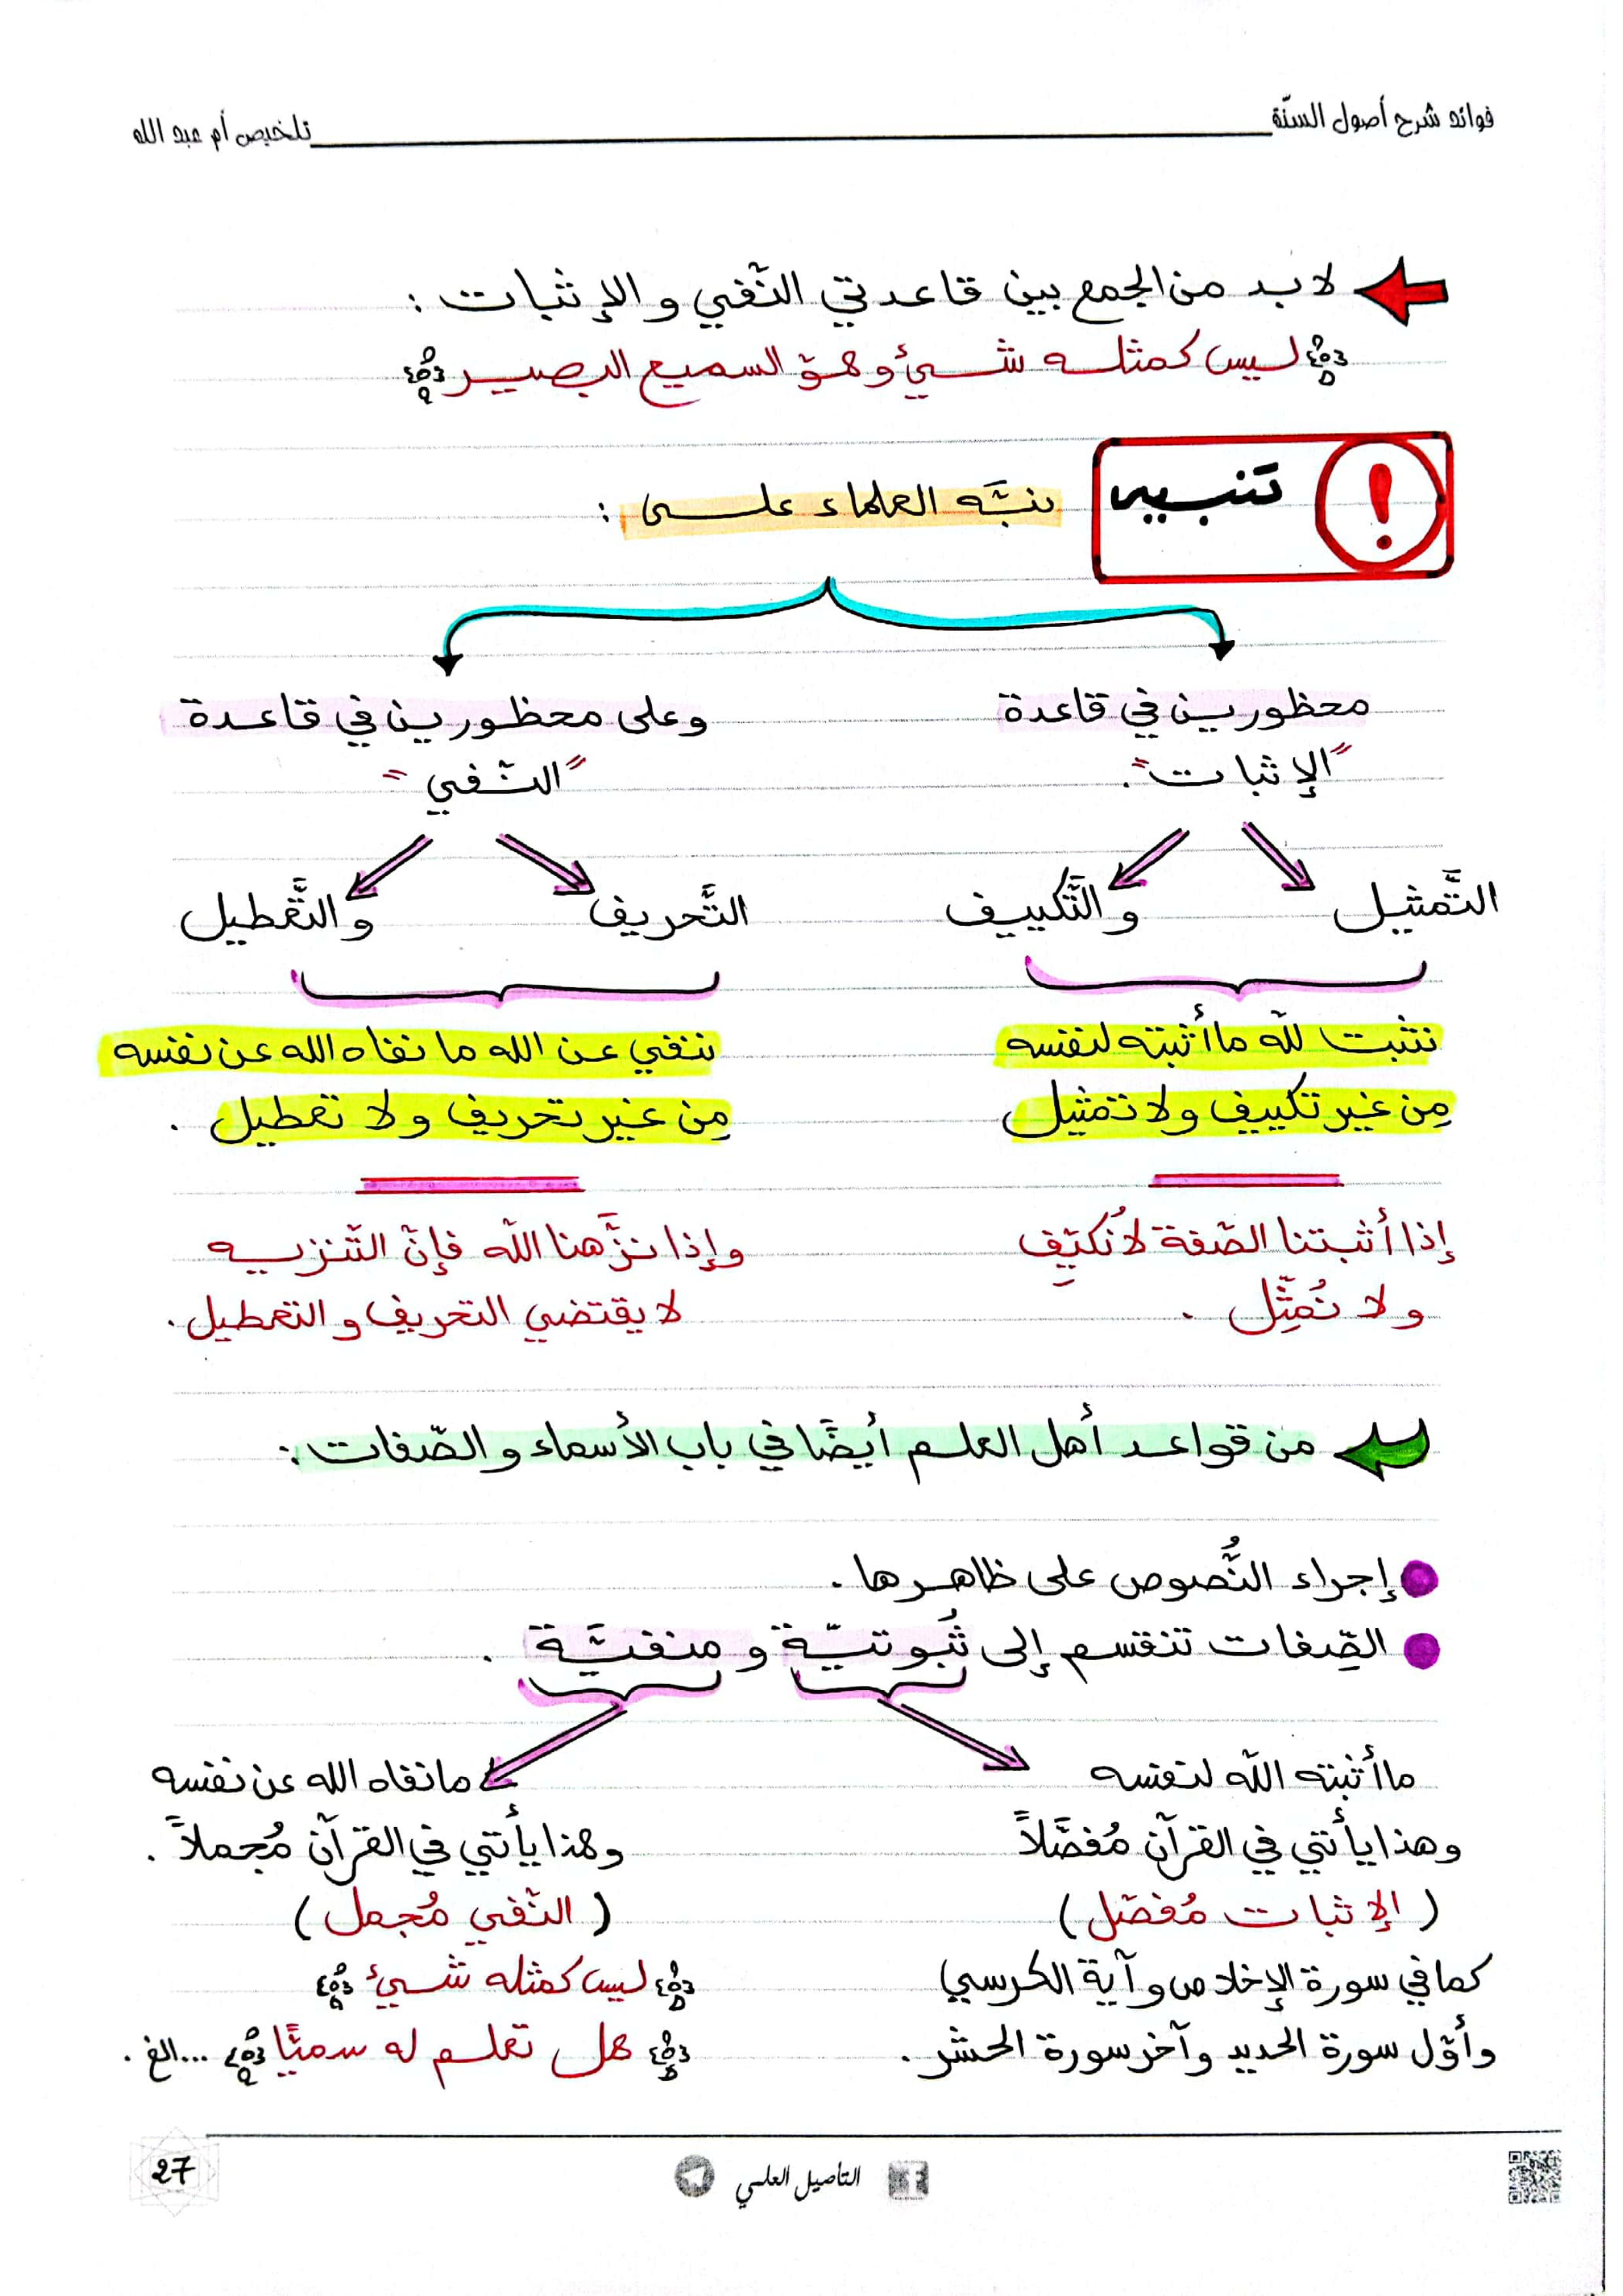 فوائد شرح أصول السنّة
تلخيص أم عبد الله
لا بد من الجمع بين قاعدتي النّفي و الإثبات :
﴿ ليس كمثله شيئ وهو السميع البصير ﴾
تنبيه
ينبَّه العلماء على :
محظورين في قاعدة
"الإثبات".
وعلى محظورين في قاعدة
"النّفي"
التَّمثيل
و التَّكييف
التَّحريف
و التَّعطيل
نثبت للّه ما أثبته لنفسه
مِن غير تكييف ولا تمثيل
ننفي عن الله ما نفاه الله عن نفسه
مِن غير تحريف ولا تعطيل .
إذا أثبتنا الصّفة لا نُكيِّف
ولا نُمثِّل .
وإذا نزَّهنا اللّه فإنّ التّنزيه
لا يقتضي التحريف و التعطيل .
من قواعد أهل العلم أيضًا في باب الأسماء و الصّفات :
إجراء النُّصوص على ظاهرها .
الصِّفات تنقسم إلى ثُبوتيّة و منفيَّة .
ما أثبته اللّه لنفسه
وهذا يأتي في القرآن مُفصَّلاً
( الإثبات مُفصّل )
كما في سورة الإخلاص وآية الكرسي
وأوّل سورة الحديد وآخر سورة الحشر .
ما نفاه الله عن نفسه
وهذا يأتي في القرآن مُجملاً .
( النّفي مُجمل )
﴿ ليس كمثله شيئ ﴾
﴿ هل تعلم له سميًّا ﴾ ...الخ .
التأصيل العلمي
27